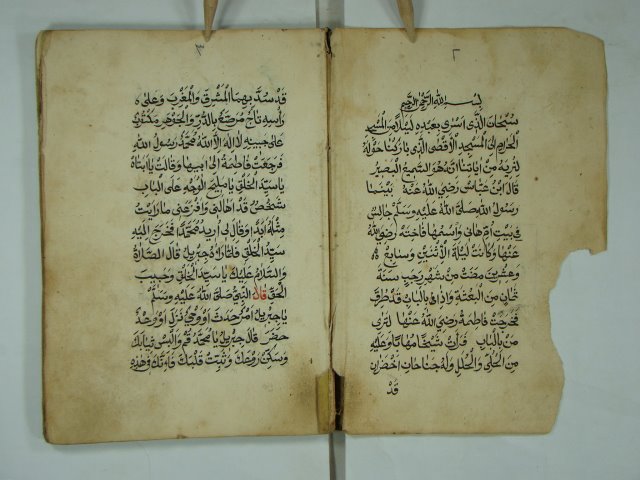 ٢
بسم الله الرحمن الرحيم
سبحان الذى اسرى بعبده ليلا من المسجد
الحرام الى المسجد الاقصى الذى باركنا حوله
لنريه من اياتنا انه هو السميع البصير
قال ابن عباس رضى الله عنه بينما
رسول الله صلى الله عليه وسلم جالس
فى بيت ام هانى واسمها فاخته رضى الله
عنها وكانت ليلة الاثنين وسابع
وعشرين مضت من شهر رجب سنة
ثمان من البعثة واذا بالباب قد طرق
فخرجت فاطمة رضى الله عنها لترى
من بالباب فرات شخصا مهابا وعليه
من الحلى والحلل وله جناحان اخضران
قد
٣
قد سد بهما المشرق والمغرب وعلى
راسه تاج مرصع بالدر والجوهر مكتوب
على جبينه لا اله الا الله محمد رسول الله
فرجعت فاطمة الى ابيها وقالت يا ابتاه
يا سيد الخلق يا مليح الوجه على الباب
شخص قد اهالنى وافزعنى ما رايت
مثله ابدا وقال لى اريد محمدا فخرج اليه
سيد الخلق فاذا هو جبريل قال الصلاة
والسلام عليك يا سيد الخلق وحبيب
الحق قال النبى صلى الله عليه وسلم
يا جبريل امر حدث او وحى نزل او وعد
حضر قال جبريل يا محمد قم والبس ثيابك
وسكن روعك وثبت قلبك فانك فى هذه